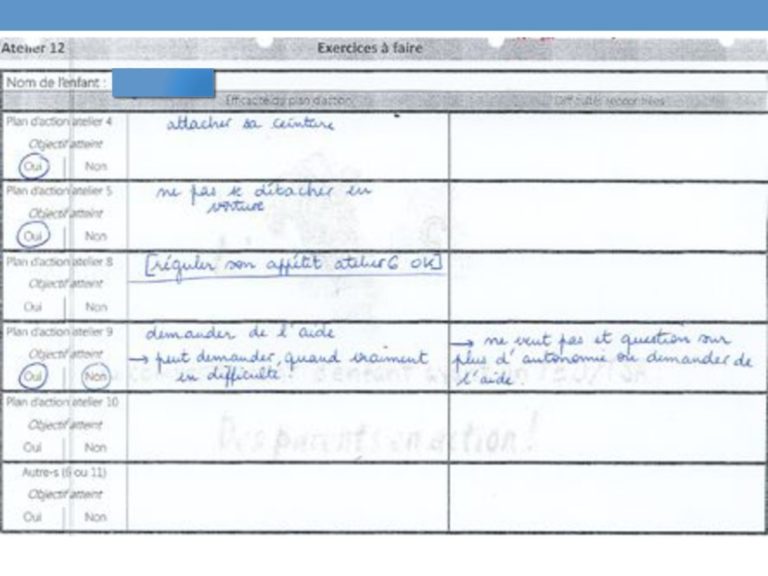 Atelier 12 Exercices à faire
Nom de l'enfant :
Efficacité du plan d'action Difficultés rencontrées
Plan d'action atelier 4 attacher sa ceinture
Objectif atteint
Oui Non
Plan d'action atelier 5 ne pas se détacher en
voiture
Objectif atteint
Oui Non
Plan d'action atelier 8 [réguler son appétit atelier 6 OK]
Objectif atteint
Oui Non
Plan d'action atelier 9 demander de l'aide
Objectif atteint
Oui Non
→ peut demander, quand vraiment
en difficulté
→ ne veut pas et question sur
plus d'autonomie ou demander de
l'aide
Plan d'action atelier 10
Objectif atteint
Oui Non
Autre-s (6 ou 11)
Objectif atteint
Oui Non
Des parents en action !